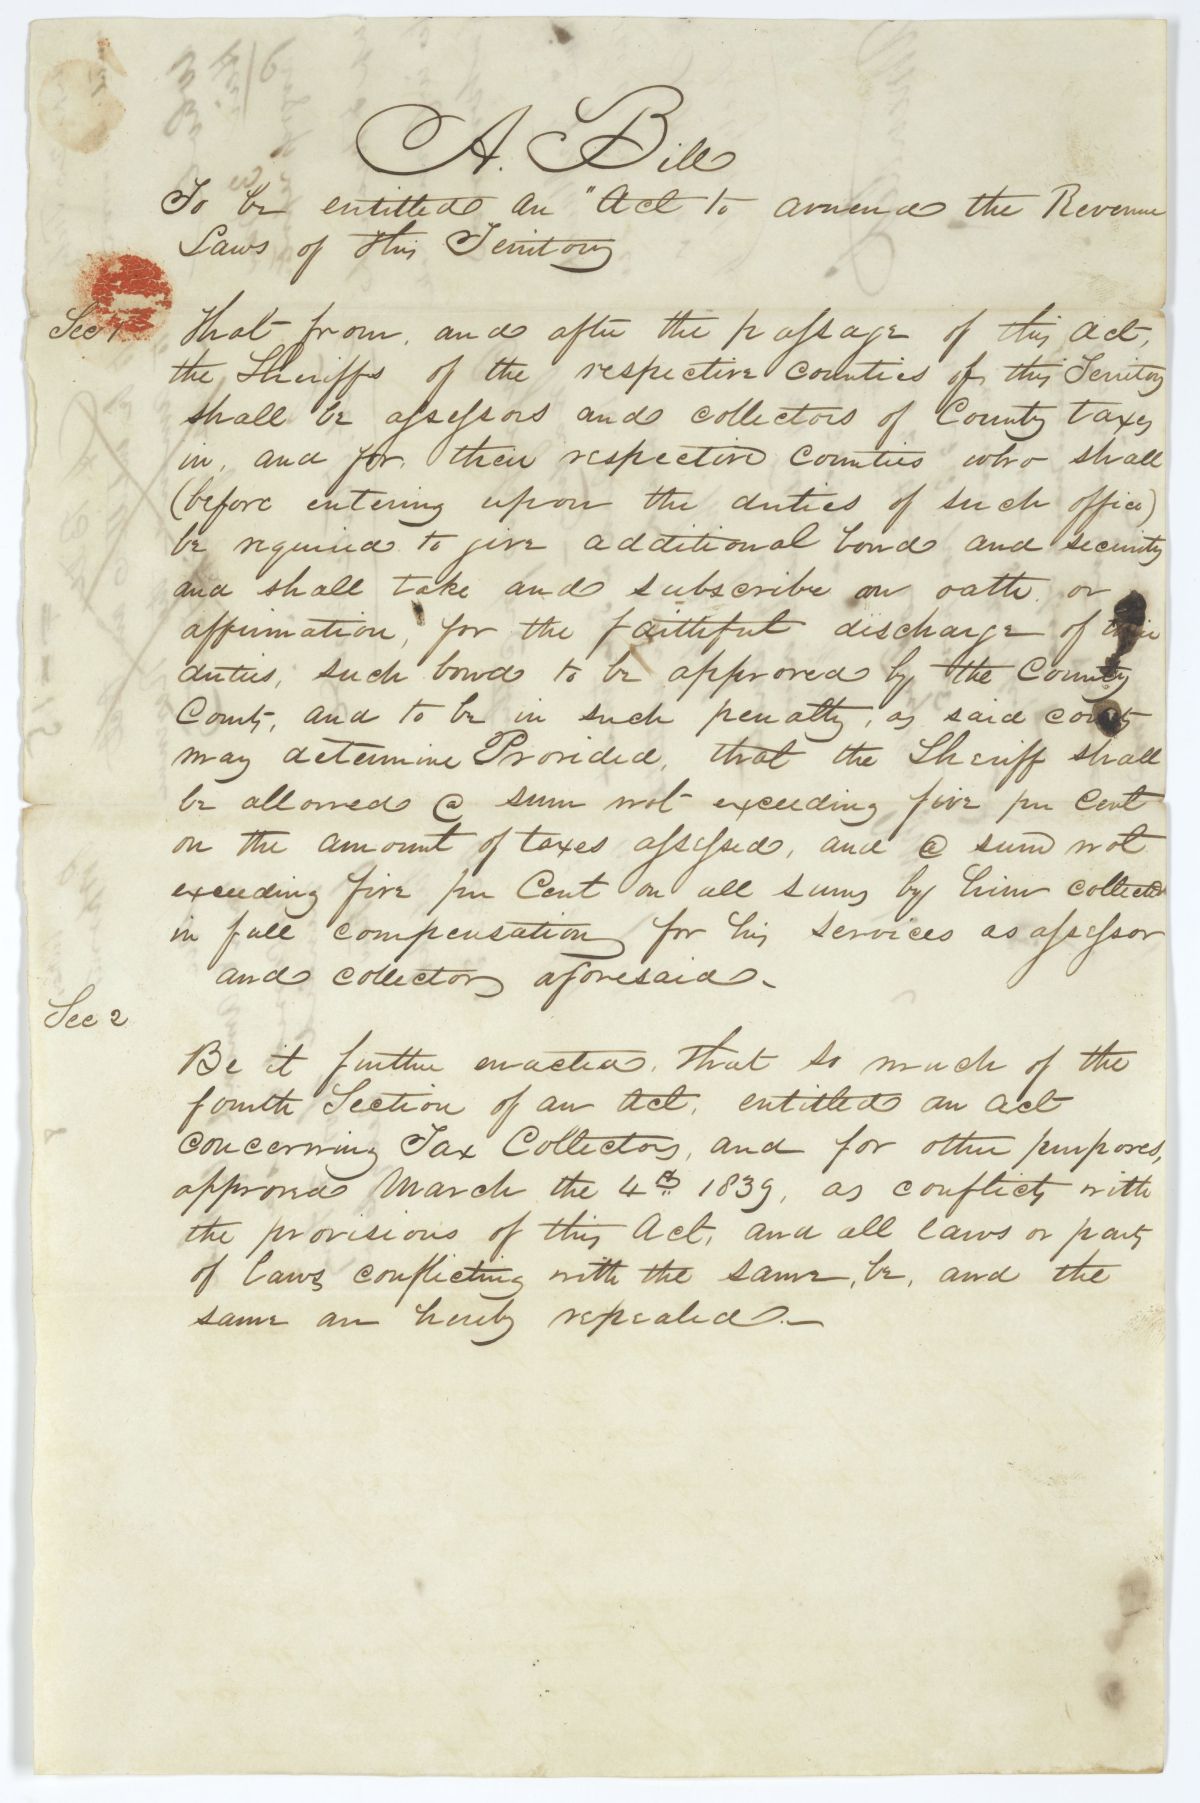 A. Bill
To be entitled an "Act to amend the Revenue
Laws of this Territory
Sec 1 That from, and after the passage of this act,
the Sheriffs of the respective counties of this Territory
shall be assessors and collectors of County taxes
in, and for, their respective Counties who shall
(before entering upon the duties of such office)
be required to give additional bond and security
and shall take and subscribe an oath or
affirmation, for the faithful discharge of their
duties, such bond to be approved by the County
Court, and to be in such penalty, as said county
may determine Provided, that the Sheriff shall
be allowed @ sum not exceeding five per Cent
on the amount of taxes assessed, and @ sum not
exceeding five per Cent on all sums by him collected
in full compensation for his services as assessor
and collector aforesaid.
Sec 2
Be it further enacted, That so much of the
fourth Section of an Act, entitled an act
concerning Tax Collectors, and for other purposes,
approved March the 4th 1839, as conflicts with
the provisions of this Act, and all laws or parts
of laws conflicting with the same, be, and the
same are hereby repealed.